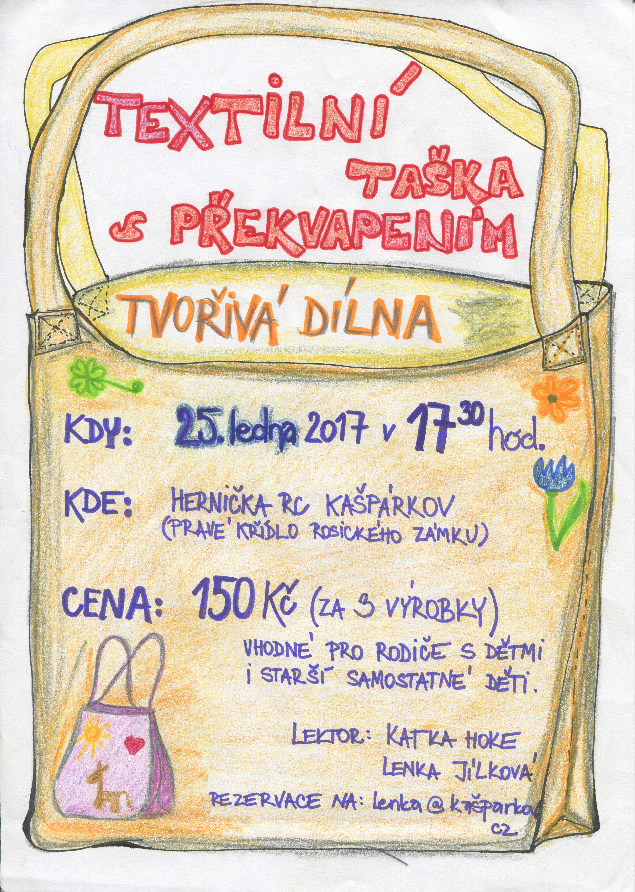 TEXTILNÍ
TAŠKA
S PŘEKVAPENÍM
TVOŘIVÁ DÍLNA
KDY: 25. ledna 2017 v 17 30 hod.
KDE: HERNIČKA RC KAŠPÁRKOV
(PRAVÉ KŘÍDLO ROSICKÉHO ZÁMKU)
CENA: 150 Kč (ZA 3 VÝROBKY)
VHODNÉ PRO RODIČE S DĚTMI
I STARŠÍ SAMOSTATNÉ DĚTI.
LEKTOR: KATKA HOKE
LENKA JÍLKOVÁ
REZERVACE NA: lenka@
cz